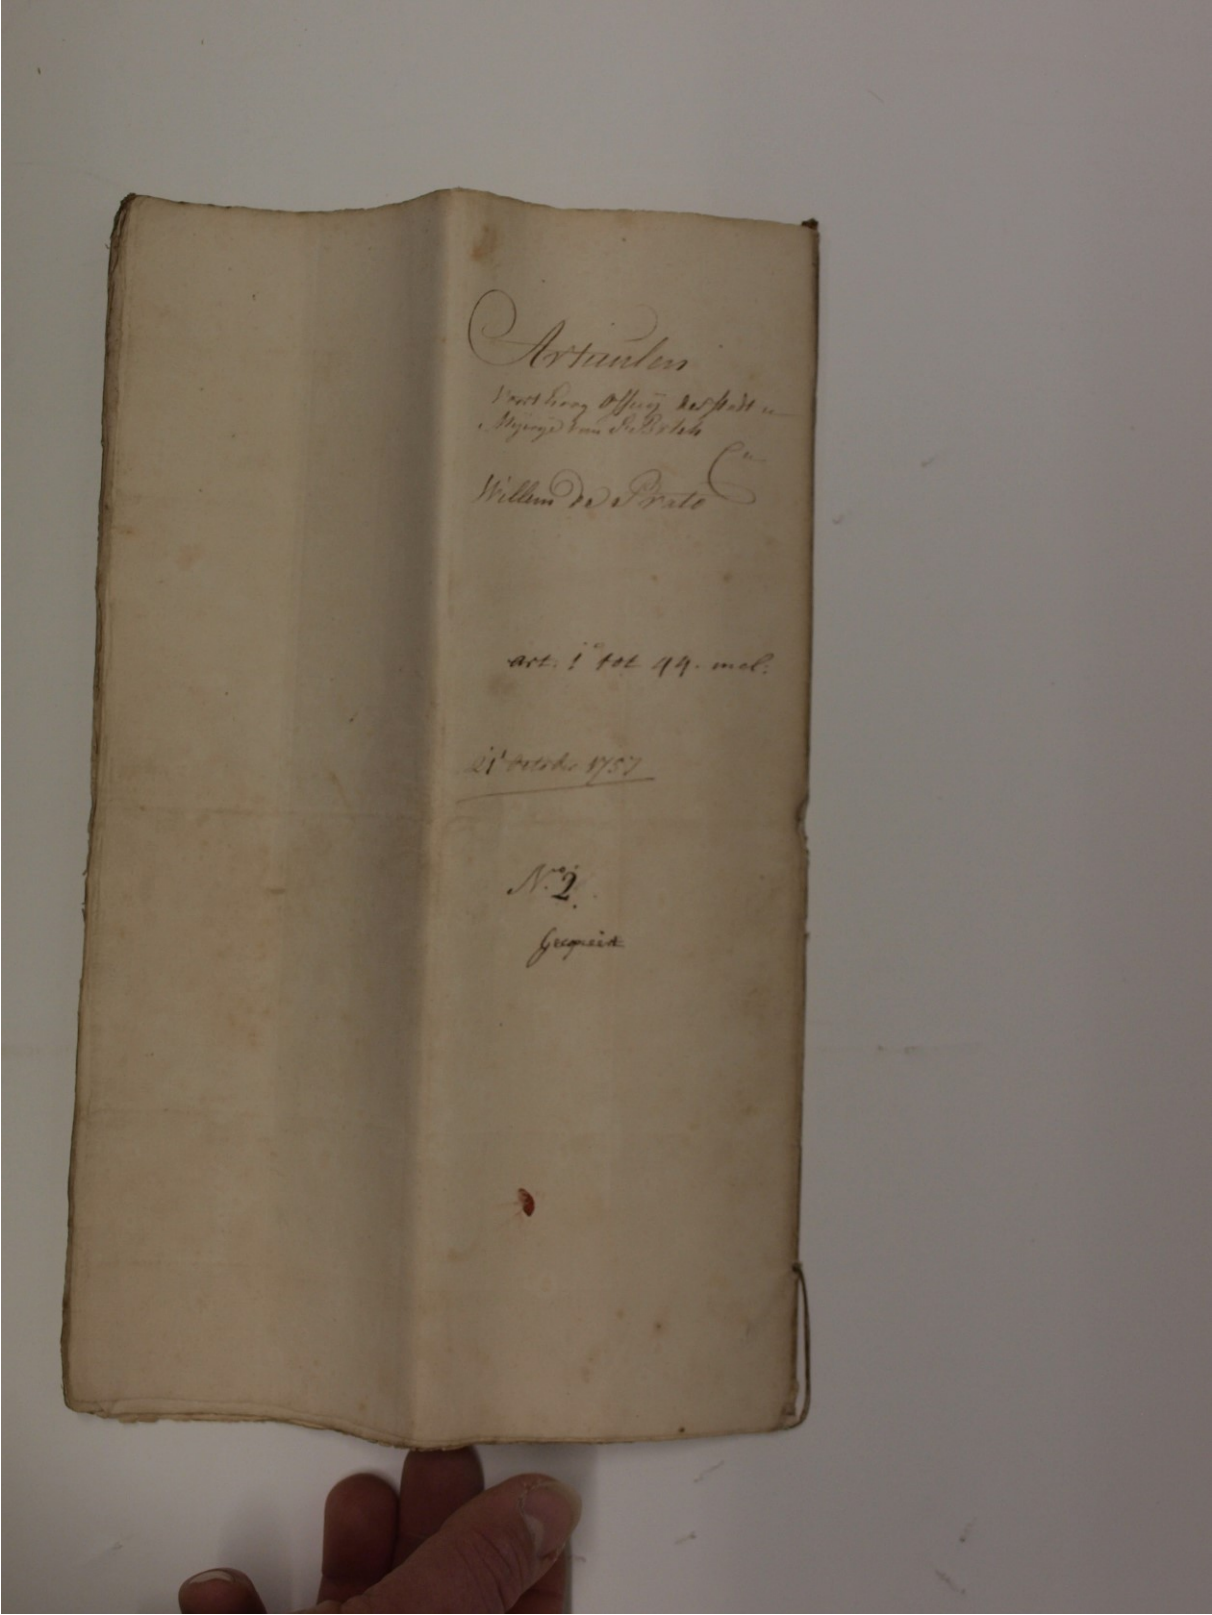 Articulen
Voor d'Hoog Offcij der stadt en
Meijerije van S: Bosch
C:a
Willem de Prato
art. 1° tot 44. incl:
21 october 1757
N:° 2.
Gregneerd